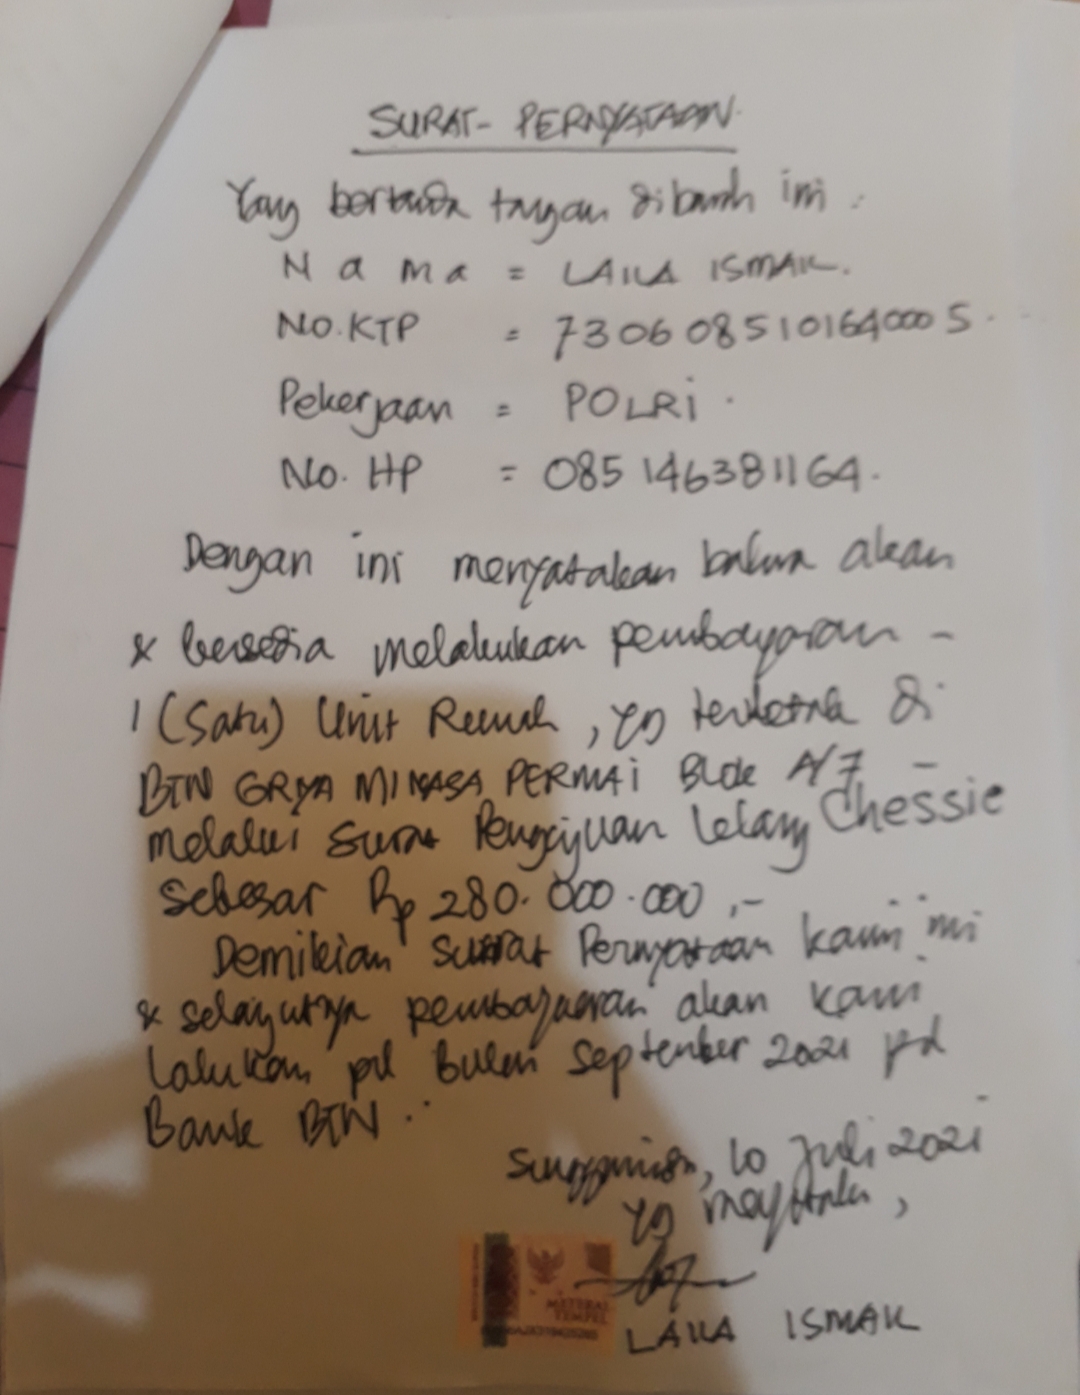 SURAT- PERNYATAAN.
Yang bertanda tangan dibawah ini :
N a m a = LAILA ISMAIL.
No. KTP = 7306085101640005.
Pekerjaan = POLRI.
No. HP = 085146381164.
Dengan ini menyatakan bahwa akan
& bersedia melakukan pembayaran -
1 (Satu) Unit Rumah, yg terletak di
BTN GRIYA MINASA PERMAI Blok A/7 -
melalui Surat Pengajuan Lelang Chessie
Sebesar Rp 280.000.000,-
Demikian Surat Pernyataan kami ini
& selanjutnya pembayaran akan kami
lakukan pd Bulan September 2021 pd
Bank BTN.
Sungguminasa, 10 Juli 2021
yg menyatakan,
METERAI
TEMPEL
LAILA ISMAIL